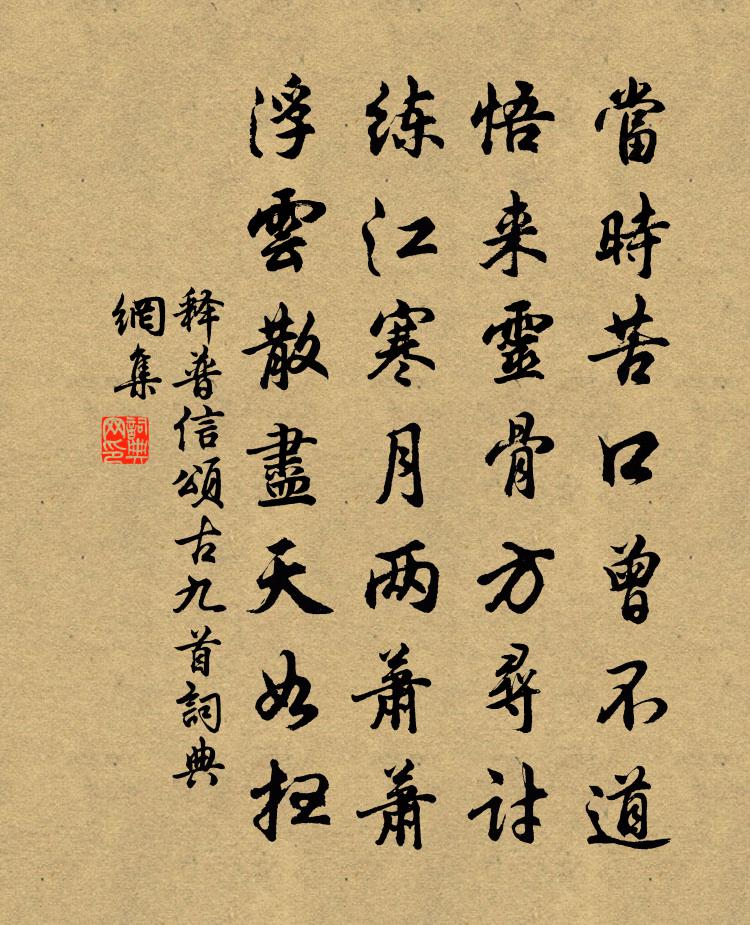 當時苦口曾不道
悟来靈骨方尋討
练江寒月两蕭蕭
浮雲散盡天如扫
释普信頌古九首詞典
網集
詞典
网印